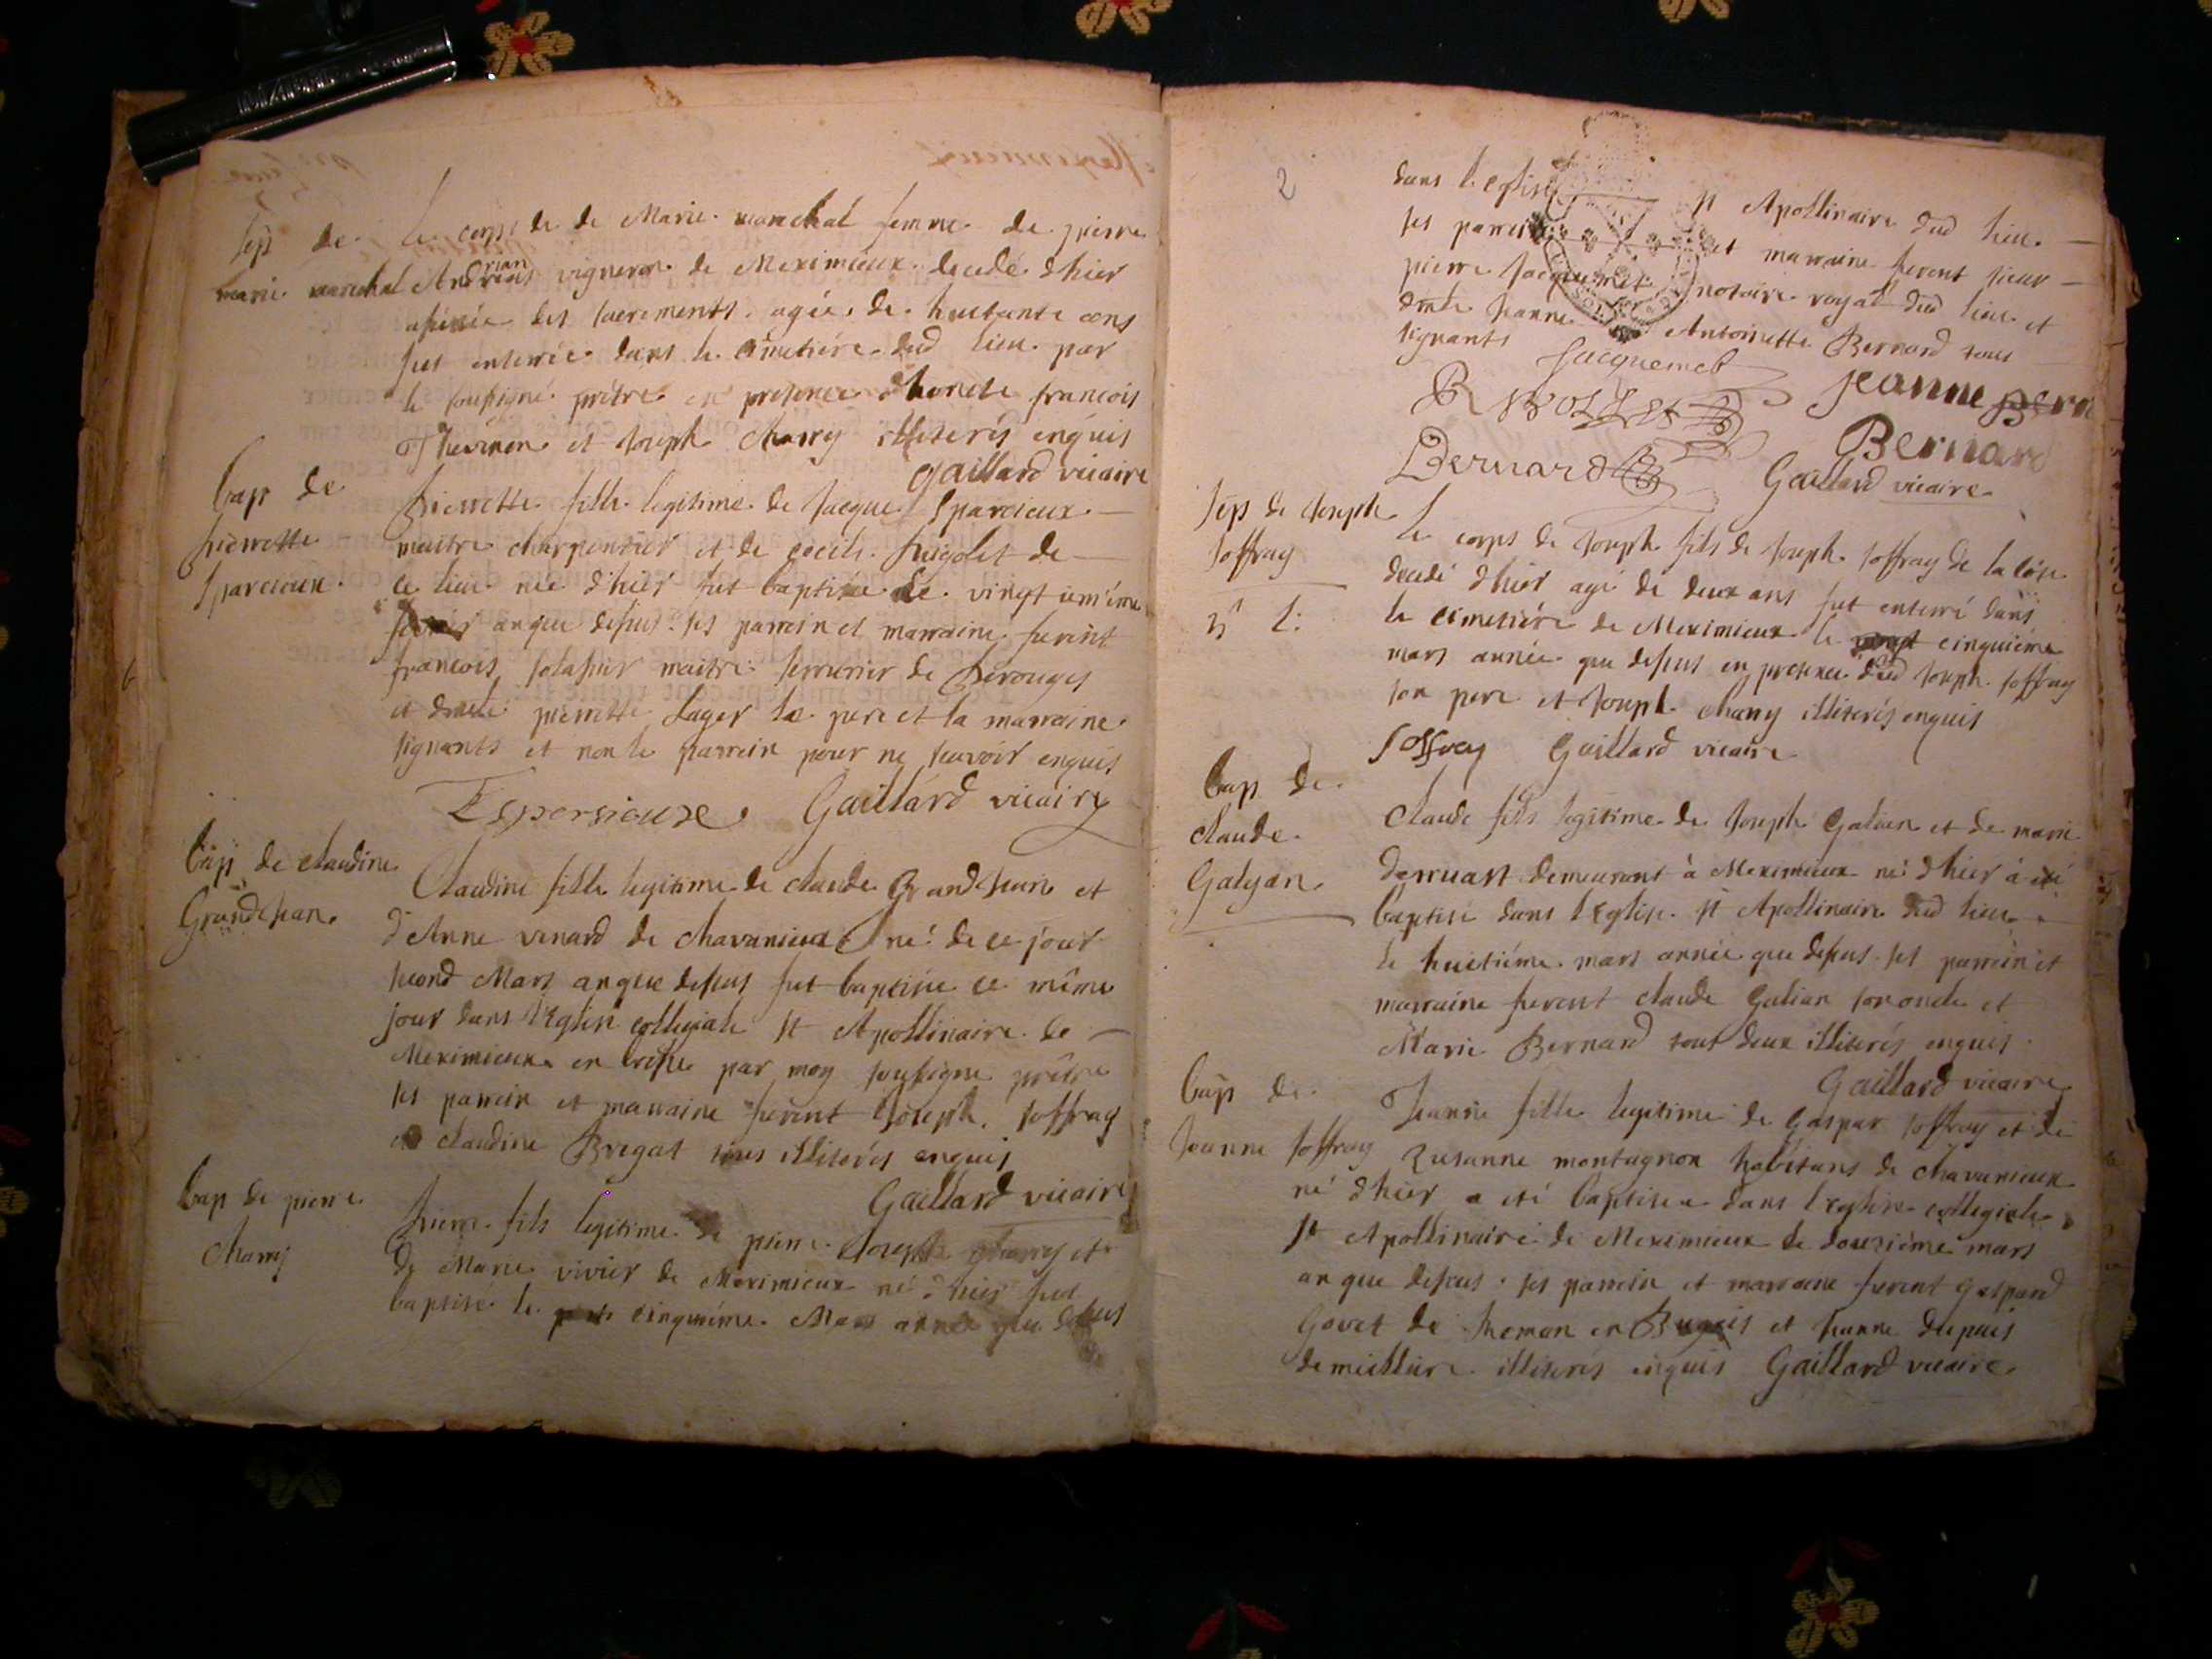 Sep de
marie marechal
Le corps de de Marie marechal femme de pierre
Andrian vigneron de Meximieux decedé d'hier
les sacrements agée de huitante ans
fut enterrée dans le cimetiére dud lieu par
le soussigné prêtre en presence d'honete francois
Thevenon et Joseph Charvy illiterés enquis
Gaillard vicaire
bap de
pierrette
Sparcieux
Pierrette fille legitime de Jacque Sparcieux
maitre charpentier et de
ce lieu née d'hier fut baptisée le vingt
an que dessus ses parrein et marraine furent
francois maitre serrurier de Perouges
et pierrette Lager le pere et la marraine
signants et non le parrein pour ne scavoir enquis
Espersieuxe Gaillard vicaire
bap de claudine
Grandjean
Claudine fille legitime de claude Grandjean et
d'Anne venard de chavanieux né de ce jour
second Mars an que dessus fut baptisée ce même
jour dans l'Eglise collegiale st Apollinaire de
Meximieux en bresse par moy soussigne prêtre
ses parrein et marraine furent Joseph soffray
et claudine Bregat tous illiterés enquis
Gaillard vicaire
bap de pierre
Charvy
Pierre fils legitime de pierre Joseph charvy et
de Marie vivier de Meximieux né d'hier fut
baptise le cinquiéme Mars année que dessus
2
dans l'eglise st Apollinaire dud lieu
ses parrein et marraine furent sieur
pierre Jacquemet notaire royal dud lieu et
Jeanne Antoinette Bernard tous
signants
Jacquemet
Jeanne Bern
Bernard
Bernard
Gaillard vicaire
Sep de Joseph
soffray
Le corps de Joseph fils de Joseph soffray de la
decedé d'hier agé de deux ans fut enterré dans
le cimetiére de Meximieux le cinquiéme
mars année que dessus en presence dud Joseph soffray
son pere et Joseph charvy illiterés enquis
Soffray Gaillard vicaire
bap de
claude
Galyan
Claude fils legitime de Joseph Galian et de marie
demeurant à Meximieux né d'hier à eté
baptisé dans l'Eglise st Apollinaire dud lieu
le huitiéme mars année que dessus ses parrein et
marraine furent claude Galian son oncle et
Marie Bernard tout deux illiterés enquis
Gaillard vicaire
bap de
Jeanne soffray
Jeanne fille legitime de Gaspar soffray et de
Zusanne montagnon habitans de chavanieux
né d'hier a eté baptisee dans l'eglise collegiale
st Apollinaire de Meximieux le douziéme mars
an que dessus ses parrein et marraine furent gaspard
Govet de en Bugeis et Jeanne dupuis
de illiterés enquis Gaillard vicaire